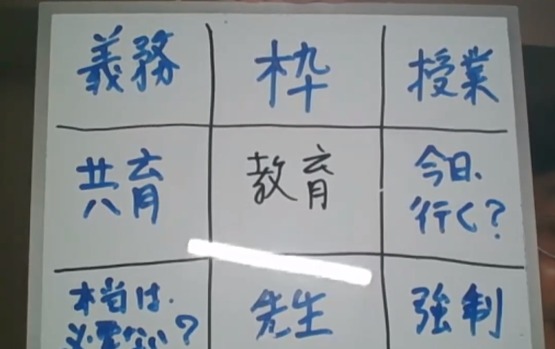 義務 枠 授業
共育 教育 今日、
行く?
本当は、 先生 強制
必要ない?